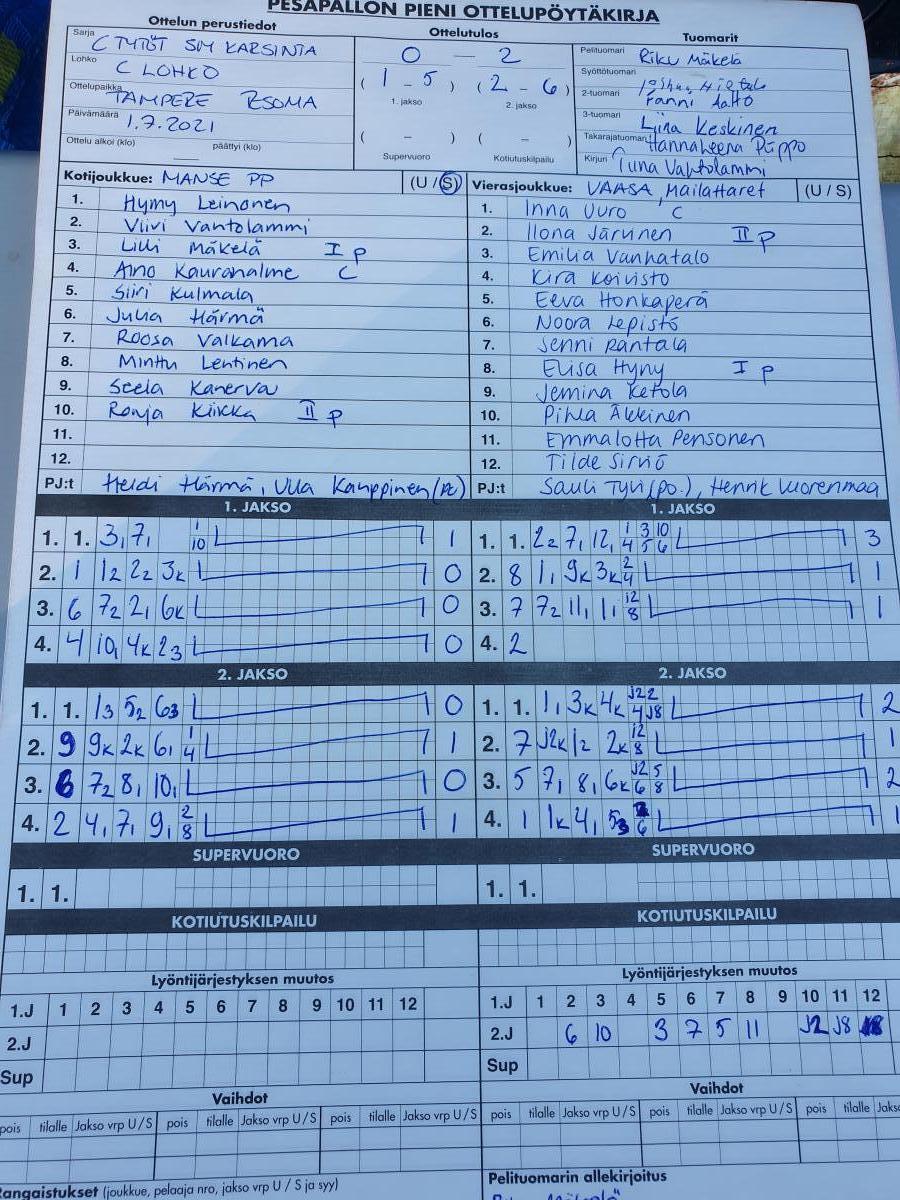 PESÄPALLON PIENI OTTELUPÖYTÄKIRJA
Ottelun perustiedot
Sarja C TYTÖT SM KARSINTA
Lohko C LOHKO
Ottelupaikka TAMPERE
Päivämäärä 1.7.2021
Ottelu alkoi (klo) päättyi (klo)
Ottelutulos
0 – 2
( 1 – 5 ) ( 2 – 6 )
1. jakso 2. jakso
( – ) ( – )
Supervuoro Kotiutuskilpailu
Tuomarit
Pelituomari Riku Mäkelä
Syöttötuomari
2-tuomari Fanni Aalto
3-tuomari Liina Keskinen
Takarajatuomari Hannaleena Piippo
Kirjuri Tiina Vahtolammi
Kotijoukkue: MANSE PP (U / S)
1. Hymy Leinonen
2. Viivi Vahtolammi
3. Lilli Mäkelä I p
4. Aino Kauranalme C
5. Siiri Kulmala
6. Julia Härmä
7. Roosa Valkama
8. Minttu Lehtinen
9. Seela Kanerva
10. Ronja Kiikka II p
11.
12.
PJ:t Heidi Härmä, Ulla Kamppinen (PE)
Vierasjoukkue: VAASA, Mailattaret (U / S)
1. Inna Uuro C
2. Ilona Järvinen II p
3. Emilia Vanhatalo
4. Kira Koivisto
5. Eeva Honkaperä
6. Noora Lepistö
7. Jenni Rantala
8. Elisa Hyny I p
9. Jemina Ketola
10. Pihla Äkkinen
11. Emmalotta Pensonen
12. Tilde Sirviö
PJ:t Sauli Tyvi (po.), Henrik Vuorenmaa
1. JAKSO
1. 1. 3₁ 7₁ 1/10 1
2. 1 1₂ 2₂ 3k 0
3. 6 7₂ 2₁ 6k 0
4. 4 10₁ 4k 2₃ 0
1. JAKSO
1. 1. 2₂ 7₁ 12₁ 1/4 3/5 10/6 3
2. 8 1₁ 9k 3k 2/4 1
3. 7 7₂ 11₁ 1₁ 12/8 1
4. 2
2. JAKSO
1. 1. 1₃ 5₂ 6₃ 0
2. 9 9k 2k 6₁ 1/4 1
3. 6 7₂ 8₁ 10₁ 0
4. 2 4₁ 7₁ 9₁ 2/8 1
2. JAKSO
1. 1. 1₁ 3k 4k J2/4 2/J8 2
2. 7 J2k 1₂ 2k 12/8 1
3. 5 7₁ 8₁ 6k J2/6 5/8 2
4. 1 1k 4₁ 5₃ 1
SUPERVUORO
1. 1.
SUPERVUORO
1. 1.
KOTIUTUSKILPAILU
KOTIUTUSKILPAILU
Lyöntijärjestyksen muutos
1.J 1 2 3 4 5 6 7 8 9 10 11 12
2.J
Sup
Lyöntijärjestyksen muutos
1.J 1 2 3 4 5 6 7 8 9 10 11 12
2.J 6 10 3 7 5 11 J2 J8
Sup
Vaihdot
pois tilalle Jakso vrp U / S pois tilalle Jakso vrp U / S pois tilalle Jakso vrp U / S
Vaihdot
pois tilalle Jakso vrp U / S pois tilalle Jakso vrp U / S pois tilalle Jakso
Rangaistukset (joukkue, pelaaja nro, jakso vrp U / S ja syy)
Pelituomarin allekirjoitus